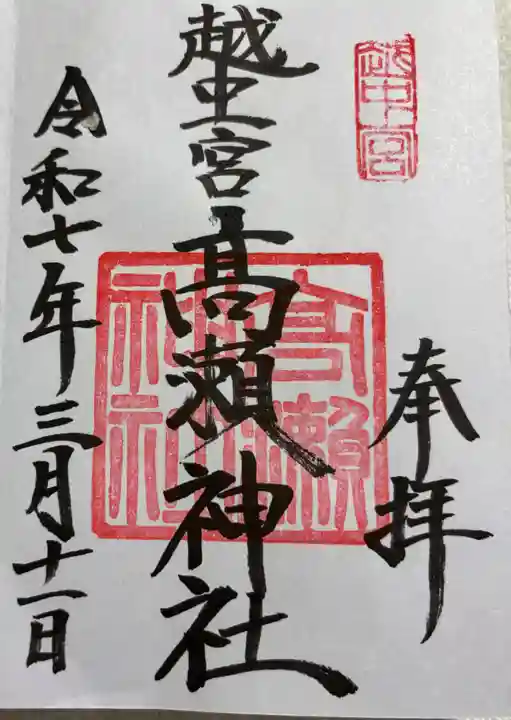 越中宮
奉拝
越中宮高瀬神社
高瀬神社
令和七年三月十一日